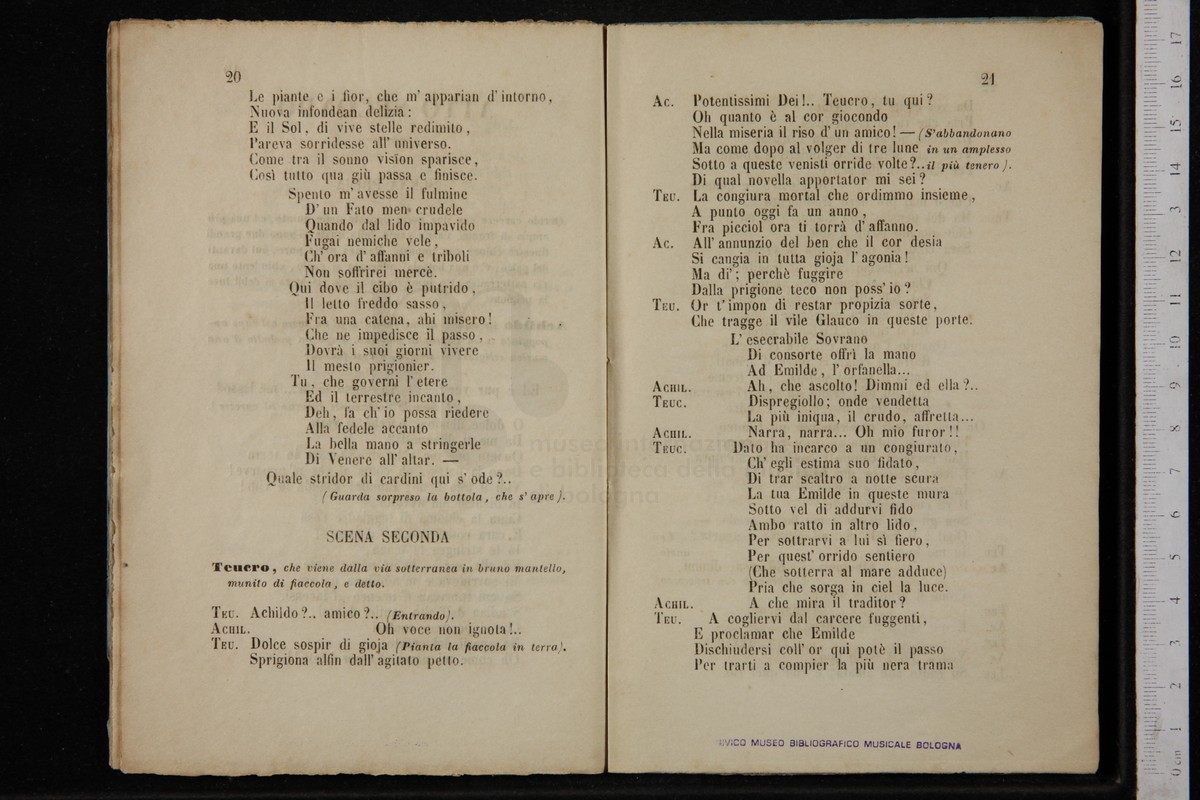 20
Le piante e i fior, che m' apparian d' intorno,
Nuova infondean delizia:
E il Sol, di vive stelle redimito,
Pareva sorridesse all' universo.
Come tra il sonno visïon sparisce,
Così tutto qua giù passa e finisce.
Spento m' avesse il fulmine
D' un Fato men crudele
Quando dal lido impavido
Fugai nemiche vele,
Ch' ora d' affanni e triboli
Non soffrirei mercè.
Qui dove il cibo è putrido,
Il letto freddo sasso,
Fra una catena, ahi misero!
Che ne impedisce il passo,
Dovrà i suoi giorni vivere
Il mesto prigionier.
Tu, che governi l' etere
Ed il terrestre incanto,
Deh, fa ch' io possa riedere
Alla fedele accanto
La bella mano a stringerle
Di Venere all' altar. —
Quale stridor di cardini qui s' ode?..
(Guarda sorpreso la bottola, che s' apre).
SCENA SECONDA
Teucro, che viene dalla via sotterranea in bruno mantello,
munito di fiaccola, e detto.
Teu. Achildo?.. amico?.. (Entrando).
Achil. Oh voce non ignota!..
Teu. Dolce sospir di gioja (Pianta la fiaccola in terra).
Sprigiona alfin dall' agitato petto.
21
Ac. Potentissimi Dei!.. Teucro, tu qui?
Oh quanto è al cor giocondo
Nella miseria il riso d' un amico! — (S' abbandonano
Ma come dopo al volger di tre lune in un amplesso
Sotto a queste venisti orride volte?.. il più tenero).
Di qual novella apportator mi sei?
Teu. La congiura mortal che ordimmo insieme,
A punto oggi fa un anno,
Fra picciol ora ti torrà d' affanno.
Ac. All' annunzio del ben che il cor desia
Si cangia in tutta gioja l' agonia!
Ma di'; perchè fuggire
Dalla prigione teco non poss' io?
Teu. Or t' impon di restar propizia sorte,
Che tragge il vile Glauco in queste porte.
L' esecrabile Sovrano
Di consorte offrì la mano
Ad Emilde, l' orfanella...
Achil. Ah, che ascolto! Dimmi ed ella?..
Teuc. Dispregiollo; onde vendetta
La più iniqua, il crudo, affretta...
Achil. Narra, narra... Oh mio furor!!
Teuc. Dato ha incarco a un congiurato,
Ch' egli estima suo fidato,
Di trar scaltro a notte scura
La tua Emilde in queste mura
Sotto vel di addurvi fido
Ambo ratto in altro lido,
Per sottrarvi a lui sì fiero,
Per quest' orrido sentiero
(Che sotterra al mare adduce)
Pria che sorga in ciel la luce.
Achil. A che mira il traditor?
Teu. A cogliervi dal carcere fuggenti,
E proclamar che Emilde
Dischiudersi coll' or qui potè il passo
Per trarti a compier la più nera trama
CIVICO MUSEO BIBLIOGRAFICO MUSICALE BOLOGNA